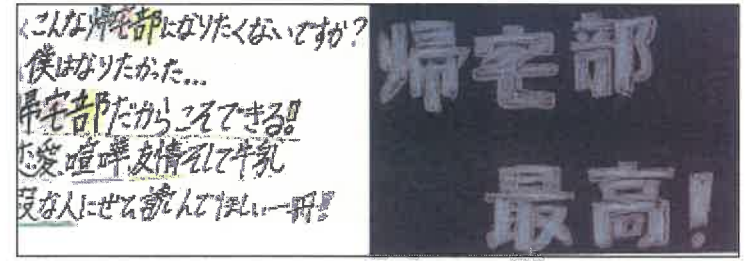 こんな帰宅部になりたくないですか？
僕はなりたかった…
帰宅部だからこそできる!!
恋愛、喧嘩、友情そして牛乳
暇な人にぜひ読んでほしい一冊!!
帰宅部
最高！